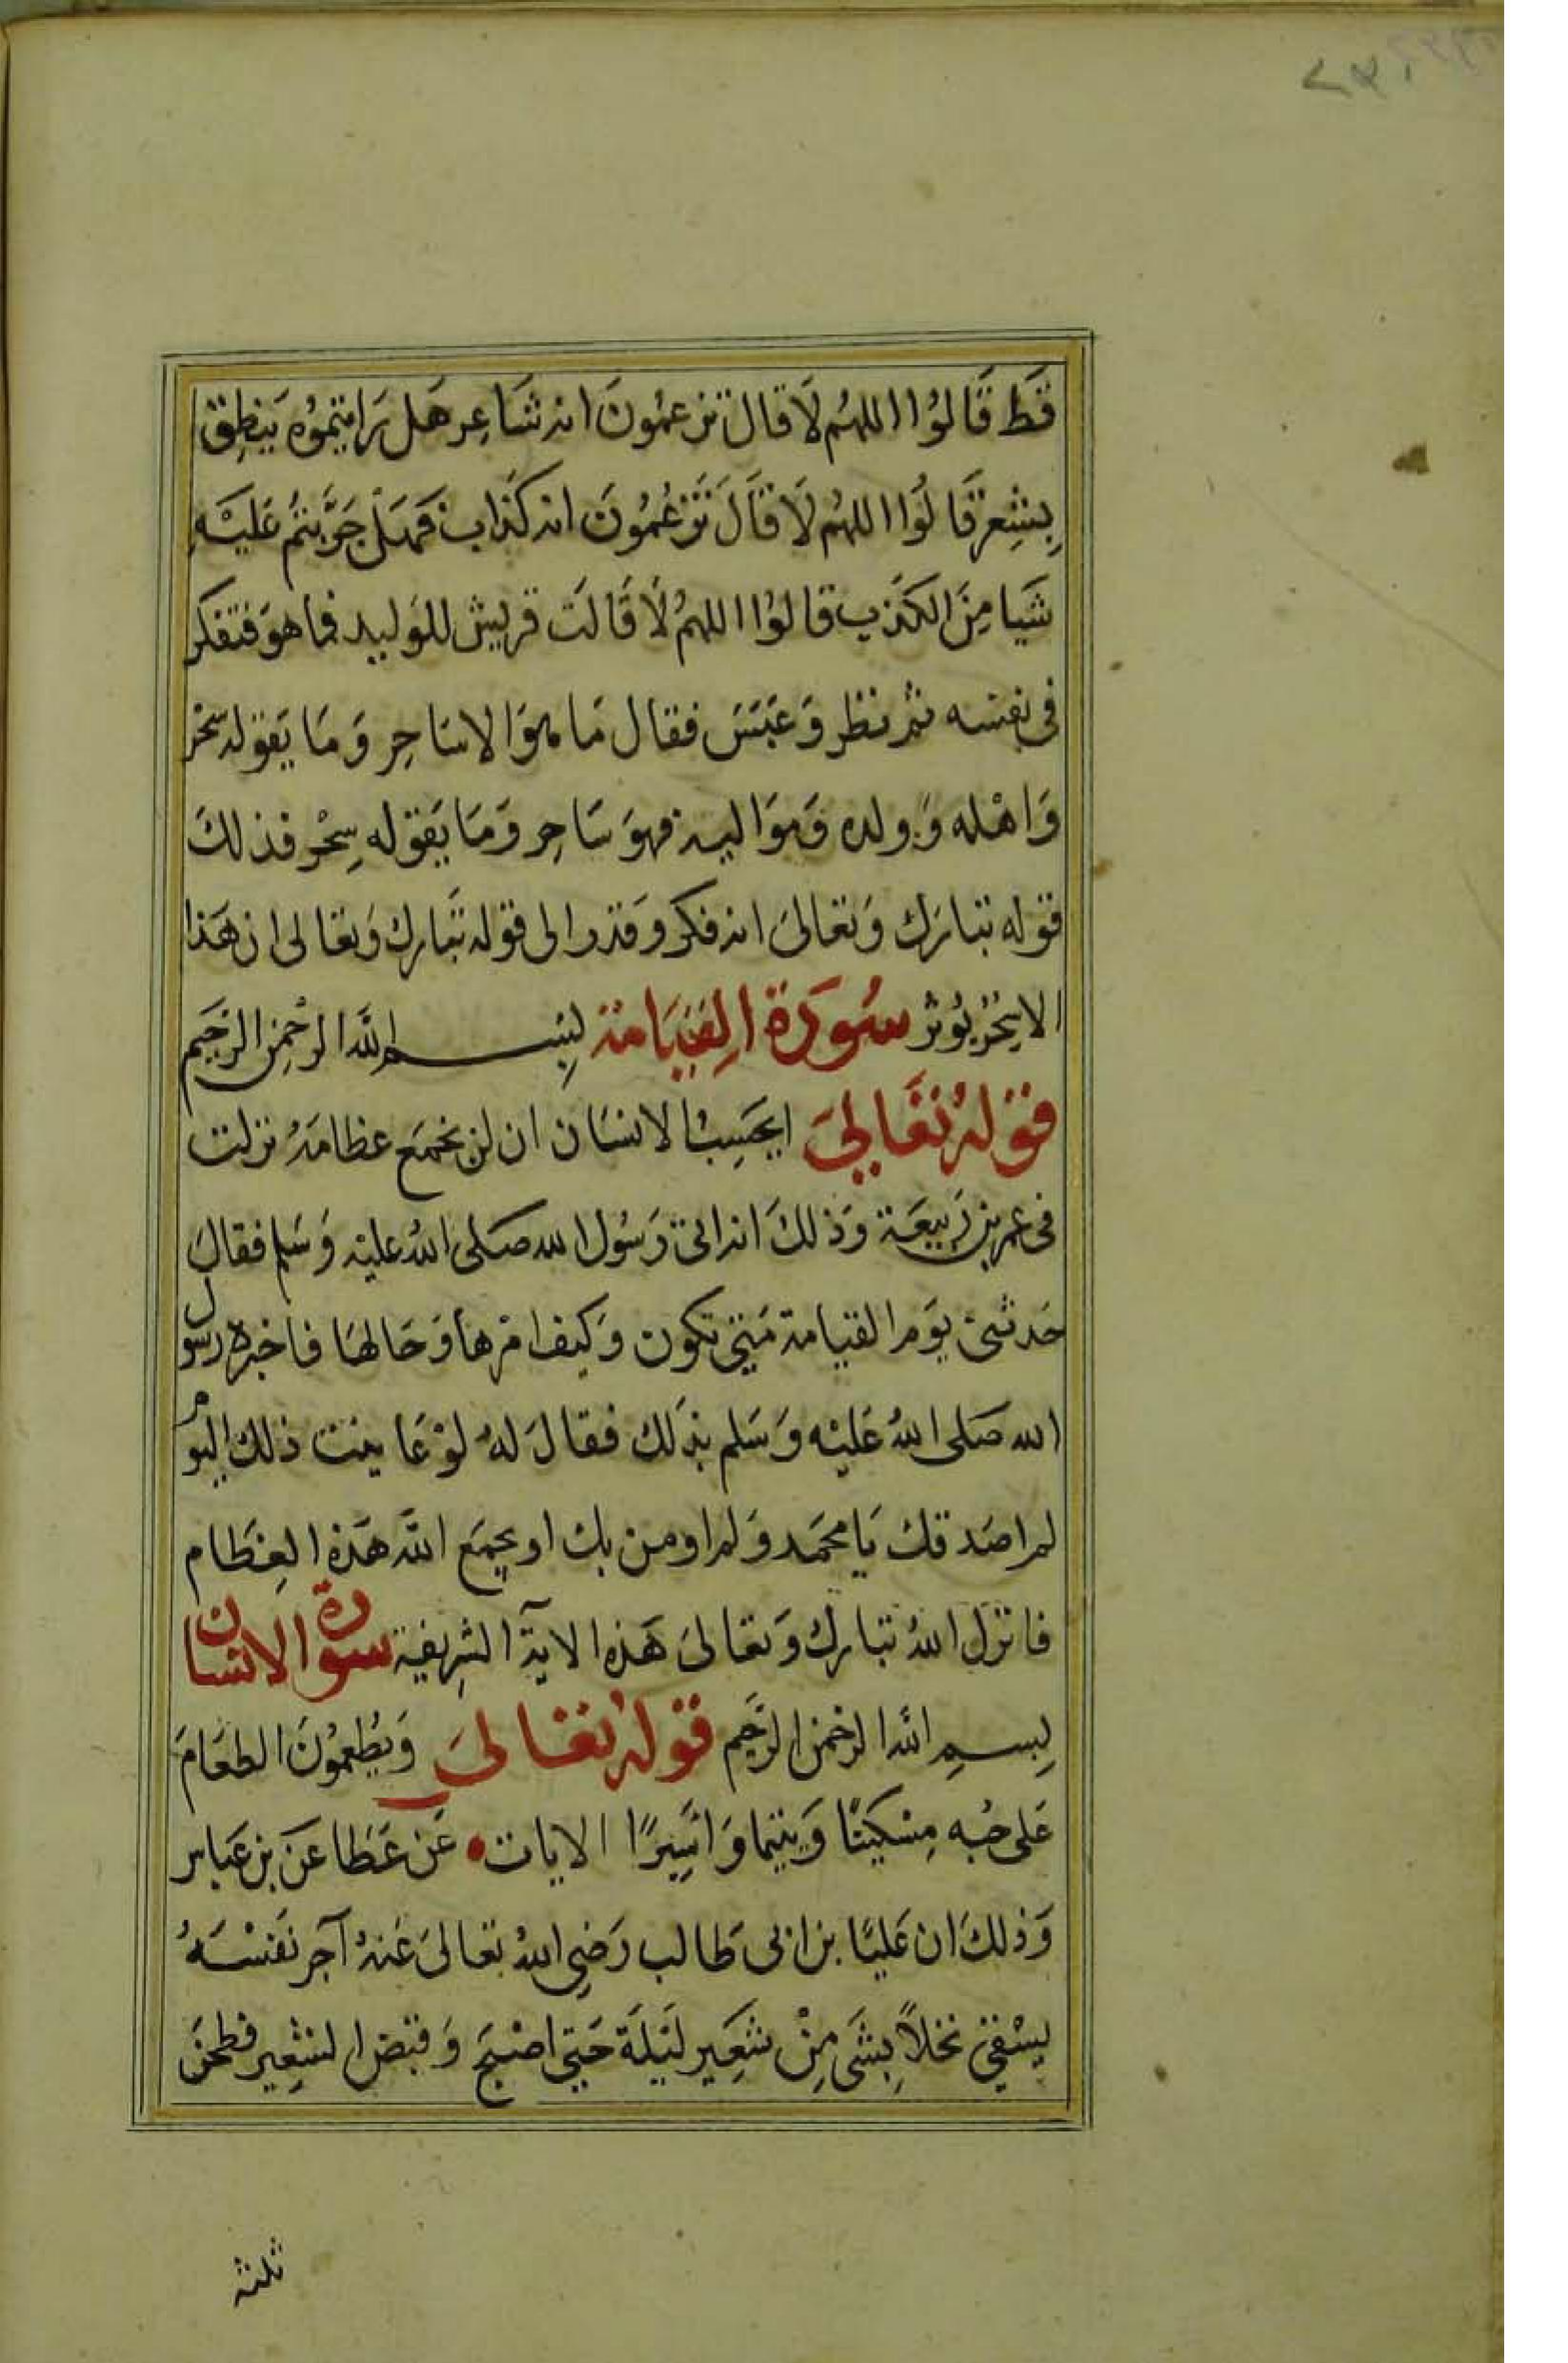 قَط قَالوُا اللهُم لَا قالَ تزعمُونَ انه شَاعِر هَل رَايتمُوُه يَنطِق
بِشِعر قَالُوا اللهُم لَا قَالَ تَزعُمُونَ انه كَذاب فَهَل جَرَّبتمُ عَليْهِ
شَيا مِنَ الكَذب قالوُا اللهمُ لَا قَالَت قريش للوَليد فما هوَ فتفكر
فى نفسه ثم نظر وَعَبَسَ فقال مَا هوَ الا سَاحِر وَمَا يَقوله سحْر
وَاهْله وَولده وَموَاليه فهوَ سَاحِر وَمَا يَقوله سِحْر فذلكَ
قوله تبارَك وَتعَالىَ انه فكر وَقدر الى قوله تبَارك وَتعَالى ان هَذا
الا سِحْر يوُثر سُورَة القيَامَة بِسم الله الرحْمن الرحَيم
قولهُ تعَالىَ ايَحسِبُ الانسَان ان لن نجمَع عظامَهُ نزلت
فى عمر بن رَبيعَة وَذلكَ انه اتى رَسُول الله صَلى اللهُ عليْه وَسَلم فقالَ
حَدثنى يَوم القيامة مَتى تكون وَكيف امْرهَا وَحَالهَا فاخبره رسول
الله صَلى اللهُ عَليْه وَسَلم بذَلك فقالَ لهُ لوْ عَاينت ذلك اليوم
لم اصَدقك يَا محمَد وَلم اومن بك او يجمَع الله هَذه العِظَام
فانزل اللهُ تبَارك وَتعَالىَ هَذه الاية الشِريفة سورة الانسان
بِسمِ الله الرحْمن الرحَيم قولهُ تعَالىَ وَيُطِعمُونَ الطعَامَ
عَلى حُبه مِسْكينًا وَيتيما وَاسِيرًا الايات • عَن عَطَا عَن بن عَباس
وَذلكَ ان عَليًا بن ابى طَالب رَضِى اللهُ تعَالىَ عَنهُ آجر نفسَهُ
يسْقى نخلاً بِشَى مِنْ شَعِير ليَلَة حَتى اصْبَح وَقبَض الشعِير فطحَن
ثلثه